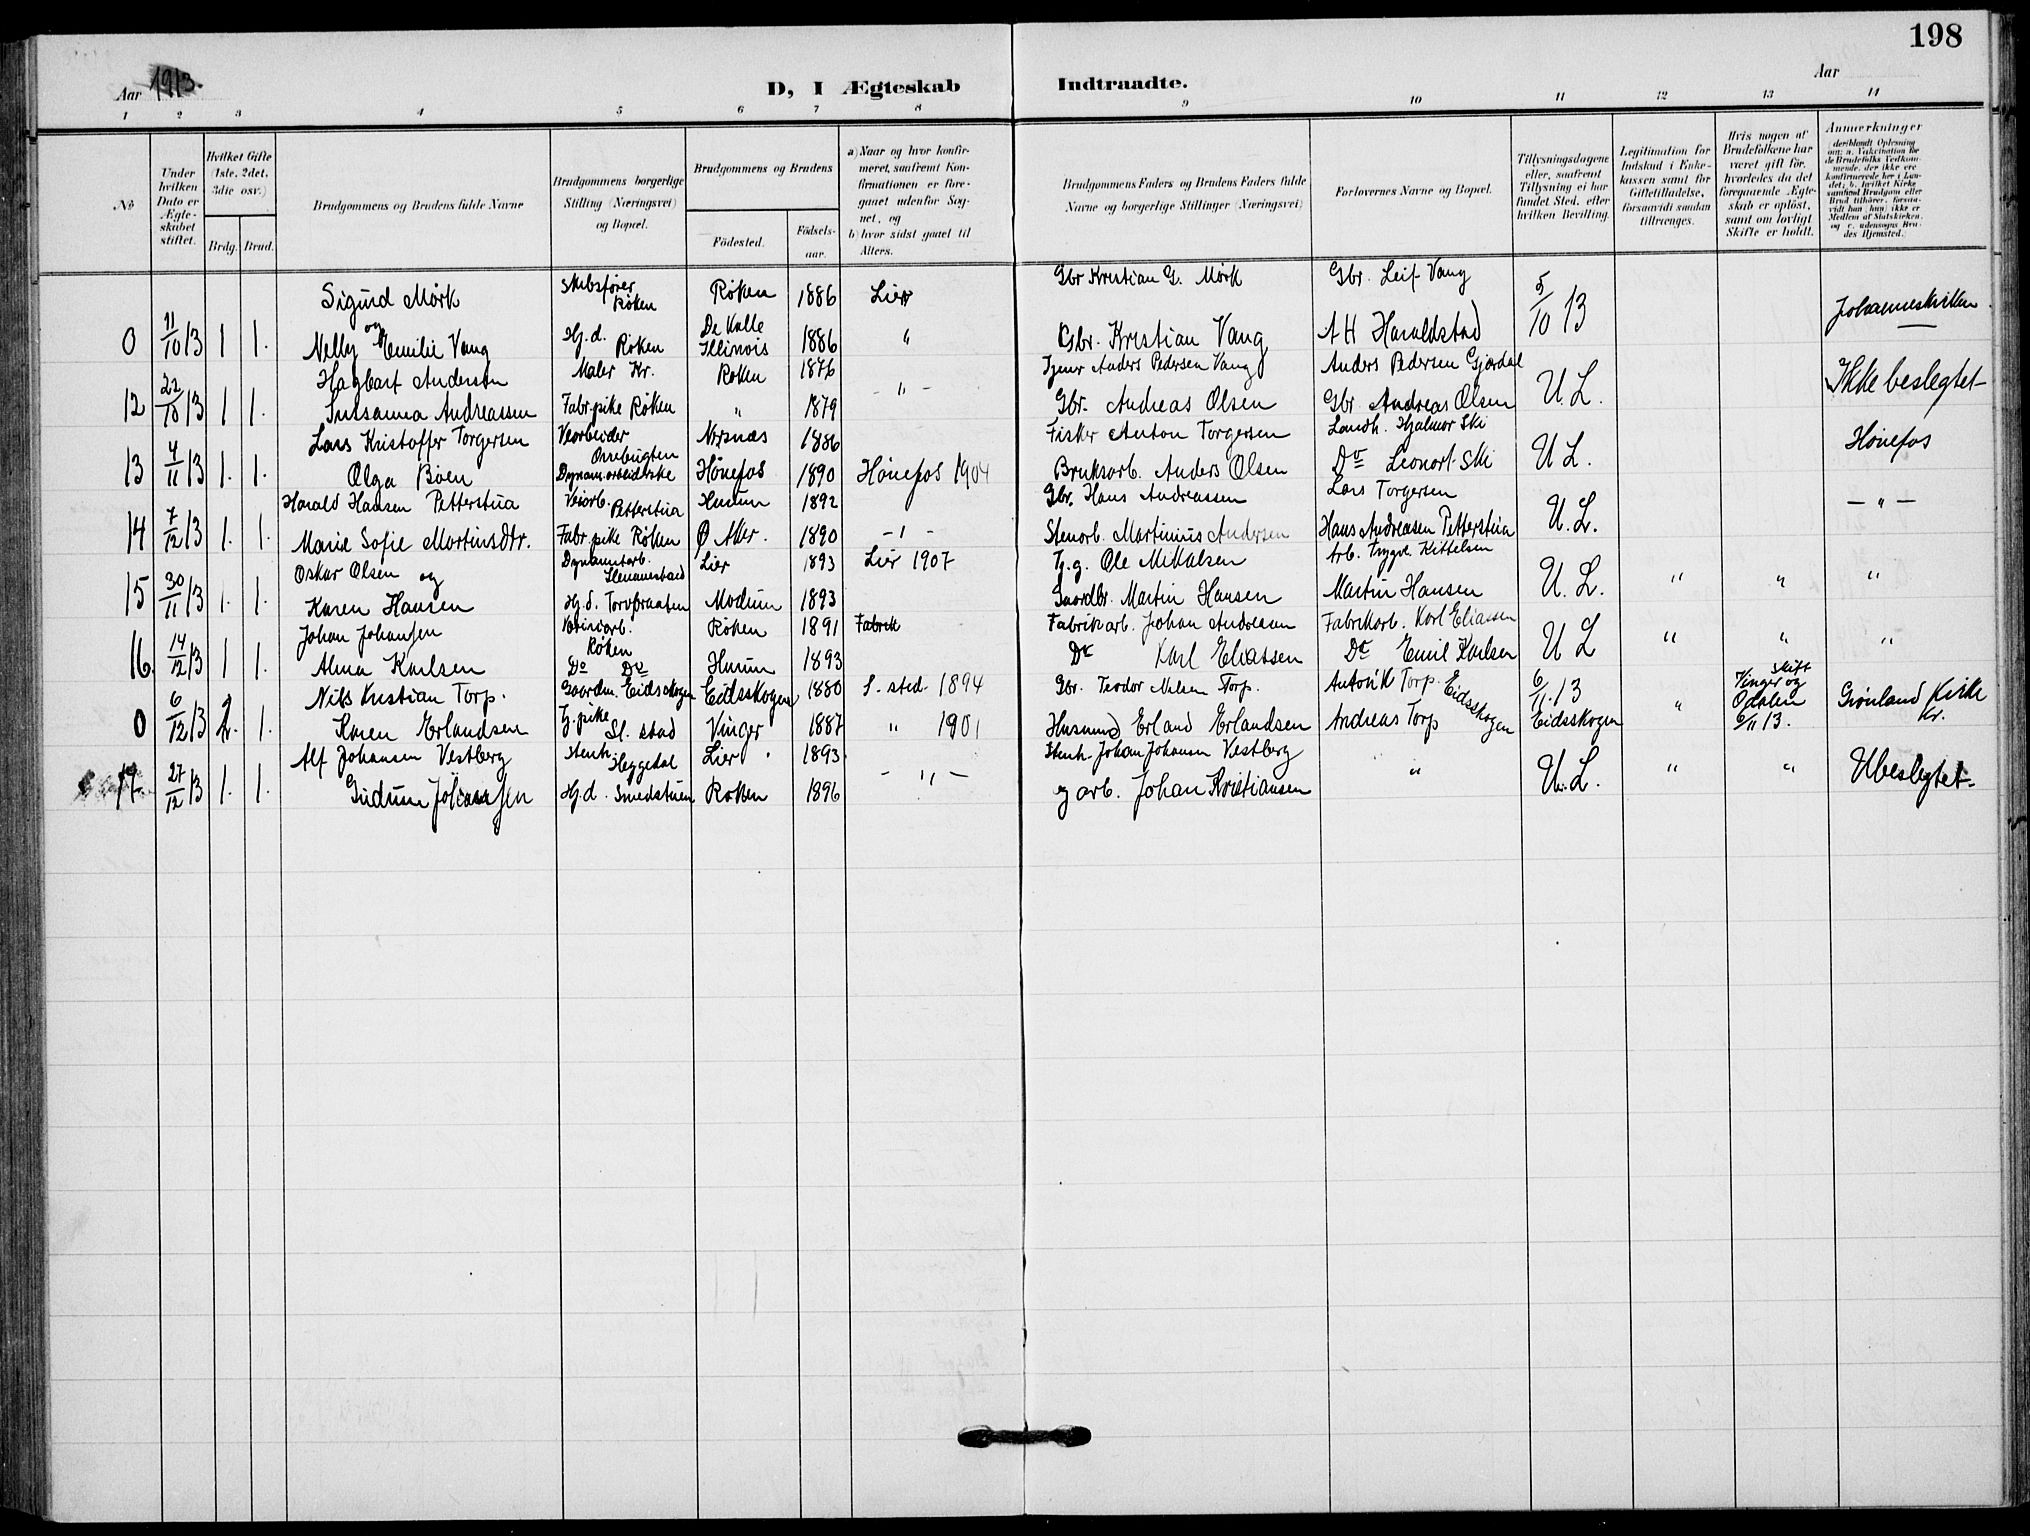 198
Aar 1913.
D, I Ægteskab Indtraadte.
Aar
1 2 3 4 5 6 7 8 9 10 11 12 13 14
No
Under hvilken Dato er Ægteskabet stiftet.
Hvilket Gifte (1ste, 2det, 3die osv.)
Brdg. Brud.
Brudgommens og Brudens fulde Navne
Brudgommens borgerlige Stilling (Næringsvei) og Bopæl.
Brudgommens og Brudens
Fødested. Fødsels-aar.
a) Naar og hvor konfirmeret, saafremt Konfirmationen er foregaaet udenfor Sognet, og b) hvor sidst gaaet til Alters.
Brudgommens Faders og Brudens Faders fulde Navne og borgerlige Stillinger (Næringsvei)
Forlovernes Navne og Bopæl.
Tillysningsdagene eller, saafremt Tillysning ei har fundet Sted, efter hvilken Bevilling.
Legitimation for Indskud i Enkekassen samt for Giftetilladelse, forsaavidt saadan tiltrænges.
Hvis nogen af Brudefolkene har været gift før, hvorledes da det foregaaende Ægteskab er opløst, samt om lovligt Skifte er holdt.
Anmerkninger
Sigurd Mørk Skibsfører Røken Røken 1886 Lier Gbr Kristian G. Mørk Gbr. Leif Vang 5/10 13 Johanneskirken
0 11/10 13 1 1. og Nelly Emilie Vang Hj.d. Røken De Kalle Illinois 1886 " Gbr. Kristian Vang A H Haraldstad
Hagbart Anderson Maler Kr. Røken 1876 Anders Pedersen Vang Anders Pedersen Gjerdal
12 22/10 13 1 1. Susanna Andreassen Fabr.pike Røken " 1879 " - Gbr. Andreas Olsen Gbr Andreas Olsen U. L. Ikke beslegtet
Lars Kristoffer Torgersen Nersnæs 1886 Fisker Anton Torgersen Landh. Hjalmar Ski
13 4/11 13 1. 1. Olga Bøen Dynam.arbeiderske Hønefos 1890 Hønefos 1904 Bruksarb. Anders Olsen Do Leonart Ski U L. Hønefos
Harald Hansen Petterstua Veiarb. Petterstua Hurum 1892 Gbr. Hans Andreassen Lars Torgersen
14 7/12 13 1. 1. Marie Sofie Martinsdtr. Fabr.pike Røken Ø Aker. 1890 - " - Stenarb. Martinius Andersen Hans Andreasen Petterstua U. L. - " -
Oskar Olsen og Dynamitarb. Slemmestad Lier 1893 Lier 1907 Ole Mikkelsen Arb. Trygve Kittelsen
15 30/11 13 1. 1. Karen Hansen Hj.d. Torvbraaten Modum 1893 Gaardbr. Martin Hansen Martin Hansen U. L. " " "
Johan Johansen Røken Røken 1891 Fabrik Fabrikarb. Johan Andreasen Fabrikarb. Karl Eliassen
16. 14/12 13 1 1. Alma Karlsen Do Do Hurum 1893 Do Karl Eliassen Do Emil Karlsen U L " " "
Nils Kristian Torp. Gaardm. Eidsskogen Eidsskogen 1880 S. sted. 1894 Gbr. Teodor Nilsen Torp. Antorik Torp. Eidsskogen 6/11. 13 Eidsskogen Skift Vinger og Odalen 6/11 13.
0 6/12 13 2. 1. Karen Erlandsen Tj.pike Sl. stad Vinger 1887 " 1901 Husmand Erland Erlandsen Andreas Torp " Grønland Kirke Kr.
Alf Johansen Vestberg Stenh. Heggedal Lier 1893 Stenh. Johan Johansen Vestberg
17 27/12 13 1. 1. Gudrun Johansen Hj.d. Smedstuen Røken 1896 - " - g arb. Johan Kristiansen " U. L. " " Ubeslegtet.